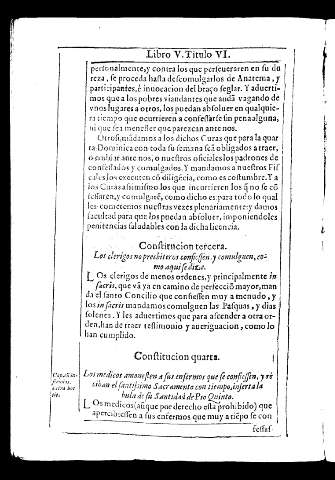 Libro V. Titulo VI.
personalmente, y contra los que perseueraren en su du
reza, se proceda hasta descomulgarlos de Anatema, y
participantes, è inuocacion del braço seglar. Y aduerti-
mos que a los pobres viandantes que andã vagando de
vnos lugares a otros, los puedan absoluer en qualquie-
ra tiempo que ocurrieren a confessarse sin pena alguna,
ni que sea menester que parezcan ante nos.
Otrosi, mãdamos a los dichos Curas que para la quar
ta Dominica con toda su semana seã obligados a traer,
o embiar ante nos, o nuestros oficiales los padrones de
confessados y comulgados. Y mandamos a nuestros Fis
cales los executen cõ diligẽcia, como es costumbre. Y a
los Curas assimismo los que incurrieren los q̃ no se cõ
fessaren, y comulgarẽ, como dicho es para todo lo qual
les cometemos nuestras vezes plenariamente: y damos
facultad para que los puedan absoluer, imponiendoles
penitencias saludables con la dicha licencia.
Constitucion tercera.
Los clerigos no presbiteros confiessen, y comulguen, co-
mo aqui se dize.
LOs clerigos de menos ordenes, y principalmente in
sacris, que vã ya en camino de perfecciõ mayor, man
da el santo Concilio que confiessen muy a menudo, y
los in sacris mandamos comulguen las Pasquas, y dias
solenes. Y les aduertimos que para ascender a otra or-
den, han de traer testimonio y aueriguacion, como lo
han cumplido.
Constitucion quarta.
Los medicos amonesten a sus enfermos que se confiessen, y re
ciban el santissimo Sacramento con tiempo, inserta la
bula de su Santidad de Pio Quinto.
LOs medicos (aũque por derecho està prohibido) que
apercibiessen a sus enfermos que muy a tiẽpo se con
fessas-